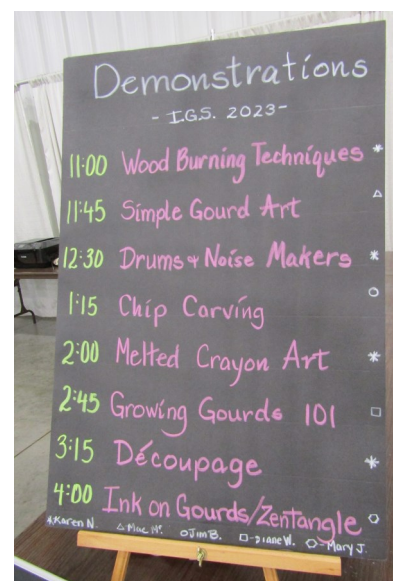 Demonstrations
- I.G.S. 2023 -
11:00 Wood Burning Techniques *
11:45 Simple Gourd Art △
12:30 Drums & Noise Makers *
1:15 Chip Carving ○
2:00 Melted Crayon Art *
2:45 Growing Gourds 101 □
3:15 Découpage *
4:00 Ink on Gourds/Zentangle ⬡
*Karen N. △ Mac ○ Jim B. □-Diane W. ⬡-Mary J.